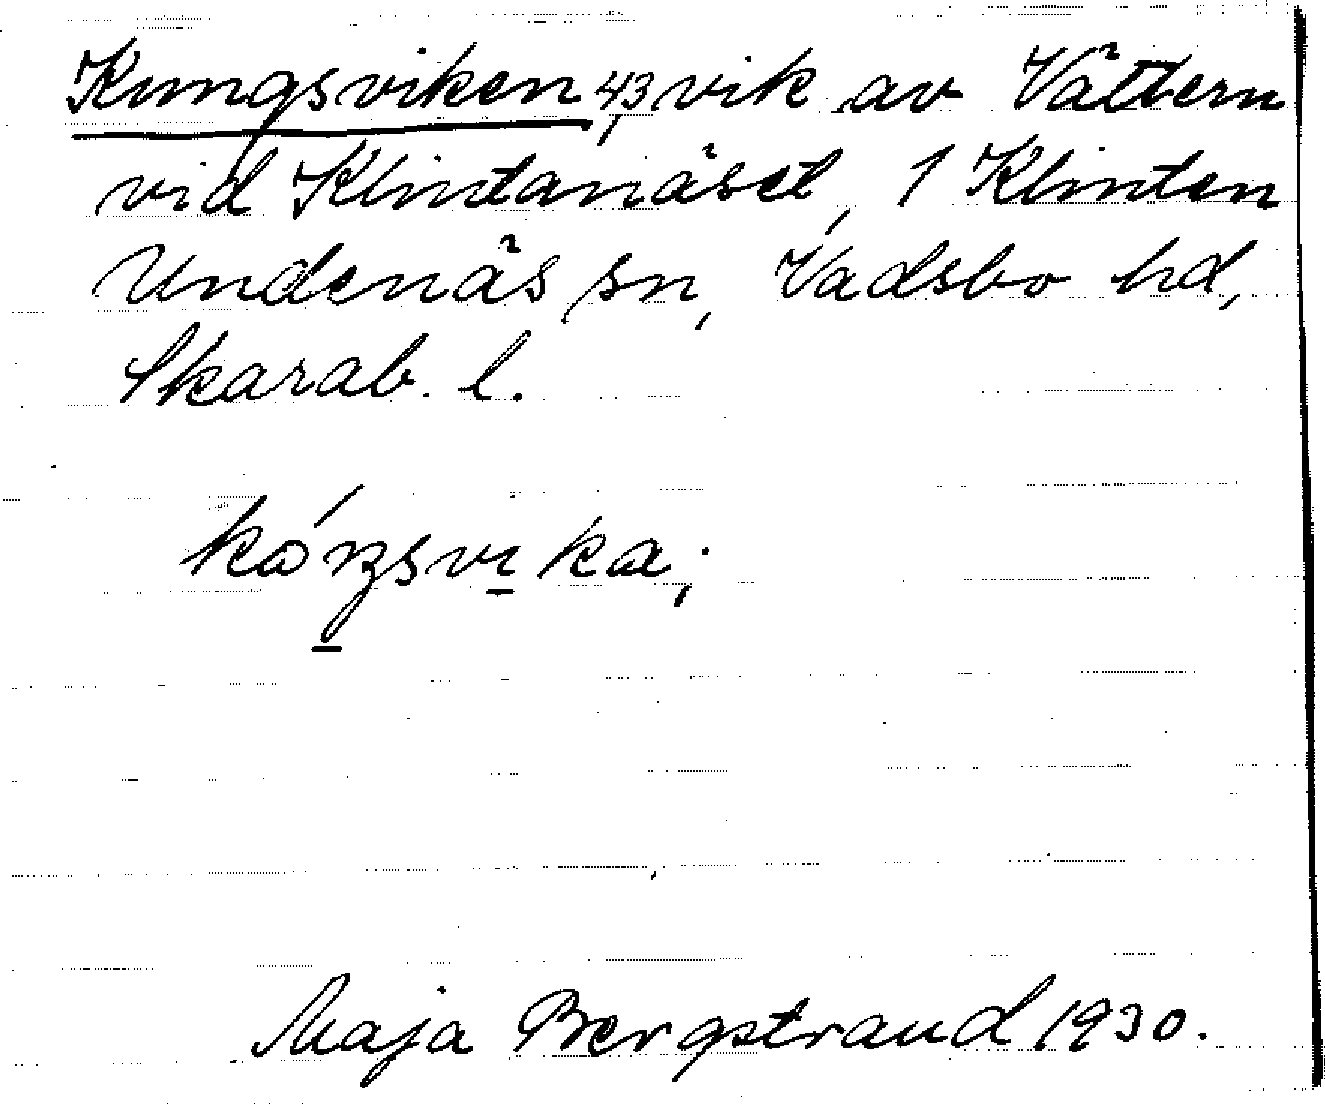 Kungsviken, 43 vik av Vättern
vid Klintanäset, 1 Klinten
Undenäs sn, Vadsbo hd,
Skarab. l.
Maja Bergstrand 1930.